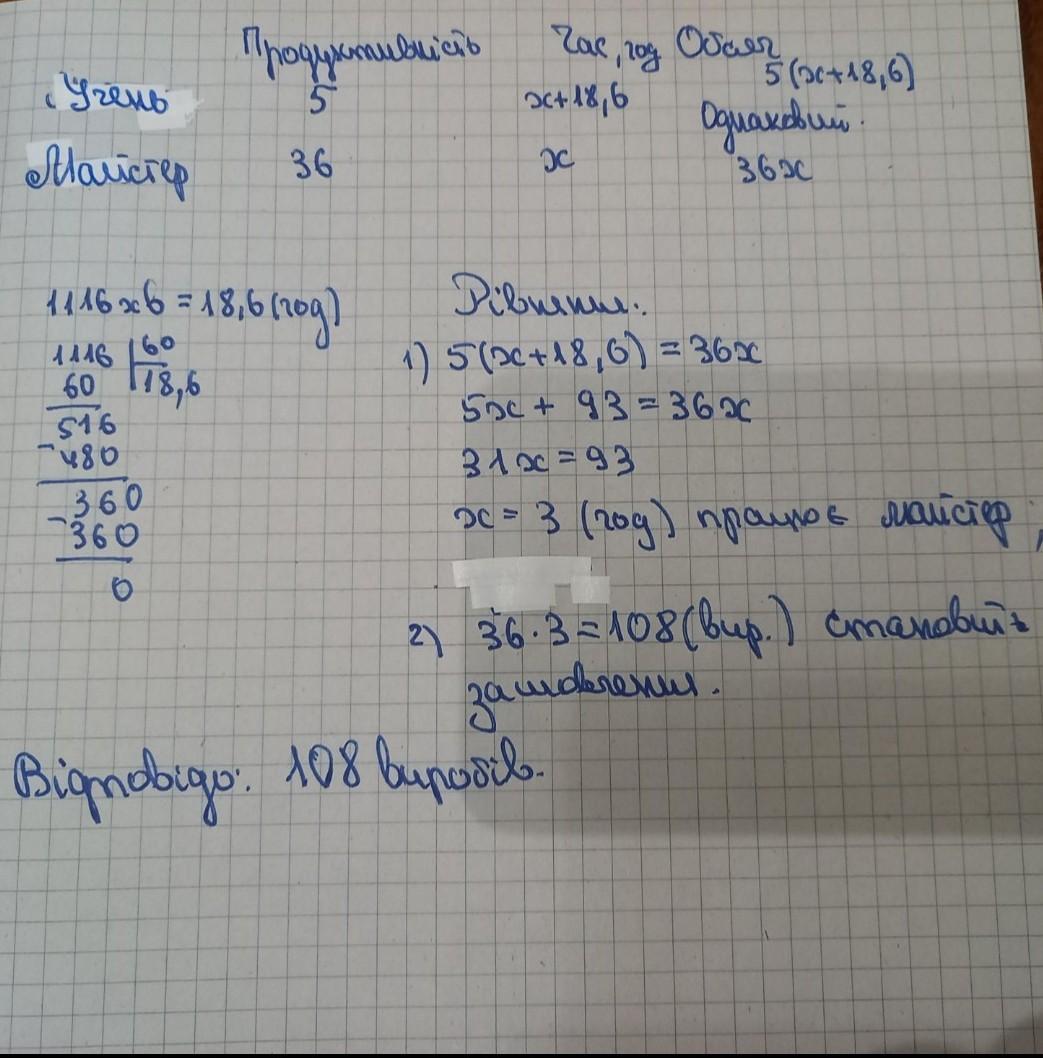 Продуктивність Час, год Обсяг
Учень 5 x+18,6 5(x+18,6)
Однаковий.
Майстер 36 x 36x
1116 хв = 18,6 (год)
1116 | 60
60 18,6
516
- 480
360
- 360
0
Рівняння:
1) 5(x+18,6) = 36x
5x + 93 = 36x
31x = 93
x = 3 (год) працює майстер;
2) 36 · 3 = 108 (вир.) становить
замовлення.
Відповідь: 108 виробів.